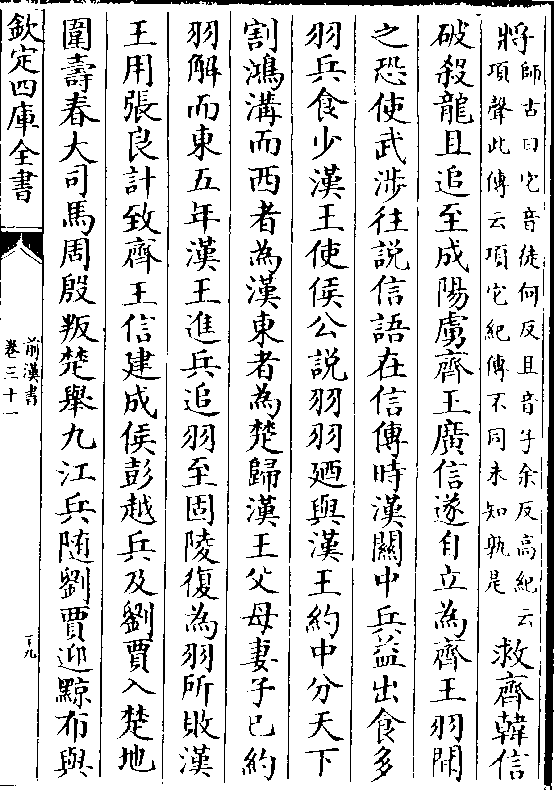 將師古曰它音徒何反且音子余反高紀云項聲此傳云項它紀傳不同未知孰是救齊韓信
破殺龍且追至成陽虜齊王廣信遂自立為齊王羽聞
之恐使武涉往說信語在信傳時漢關中兵益出食多
羽兵食少漢王使侯公說羽羽廼與漢王約中分天下
割鴻溝而西者為漢東者為楚歸漢王父母妻子已約
羽解而東五年漢王進兵追羽至固陵復為羽所敗漢
王用張良計致齊王信建成侯彭越兵及劉賈入楚地
圍壽春大司馬周殷叛楚舉九江兵隨劉賈迎黥布與
欽定四庫全書
前漢書
卷三十一
十九